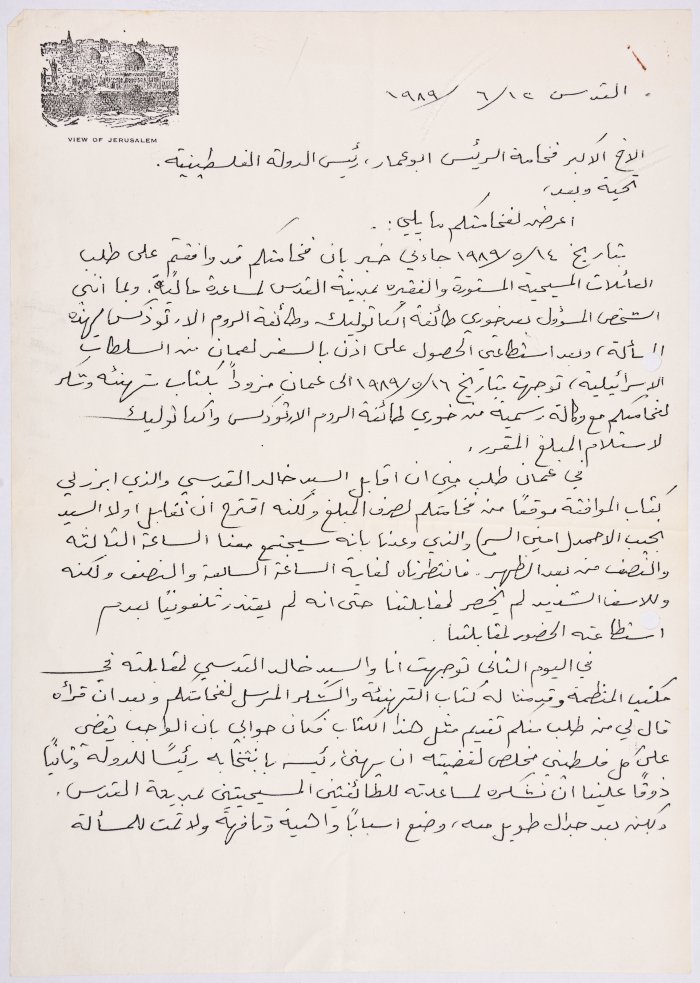 VIEW OF JERUSALEM
القدس ١٢/٦/١٩٨٩
الاخ الاكبر فخامة الرئيس ابو عمار، رئيس الدولة الفلسطينية.
تحية وبعد،
اعرض لفخامتكم ما يلي:.
بتاريخ ١٤/٥/١٩٨٩ جاءني خبر بان فخامتكم قد وافقتم على طلب
العائلات المسيحية المستورة والفقيره بمدينة القدس لمساعدة مالية، وبما انني
الشخص المسؤول بعد خوري طائفة الكاثوليك وطائفة الروم الارثوذكس بهذه
المسألة، وبعد استطاعتي الحصول على اذن بالسفر لعمان من السلطات
الإسرائيلية، توجهت بتاريخ ١٦/٥/١٩٨٩ الى عمان مزوداً بكتاب تهنئه وشكر
لفخامتكم مع وكالة رسمية من خوري طائفة الروم الارثوذكس والكاثوليك
لاستلام المبلغ المقرر.
في عمان طلب مني ان اقابل السيد خالد القدسي والذي ابرز لي
كتاب الموافقة موقعًا من فخامتكم لصرف المبلغ ولكنه اقترح ان نقابل اولا السيد
نجيب الاحمد (امين السر) والذي وعدنا بانه سيجتمع معنا الساعة الثالثة
والنصف من بعد الظهر. فانتظرناه لغاية الساعة السابعة والنصف ولكنه
وللاسف الشديد لم يحضر لمقابلتنا حتى انه لم يعتذر تلفونيًا بعدم
استطاعته الحضور لمقابلتنا.
في اليوم الثاني توجهت انا والسيد خالد القدسي لمقابلته في
مكتب المنظمة وقدمنا له كتاب التهنئة والشكر المرسل لفخامتكم وبعد ان قرأه
قال لي من طلب منكم تقديم مثل هذا الكتاب فكان جوابي بان الواجب يقضي
على كل فلسطيني مخلص لقضيته ان يهنئ رئيسه بانتخابه رئيسًا للدولة وثانيًا
ذوقًا علينا ان نشكره لمساعدته للطائفتين المسيحيتين بمدينة القدس.
ولكن بعد جدال طويل معه، وضع اسبابًا واهنية وتافهة ولا تمت للمسألة